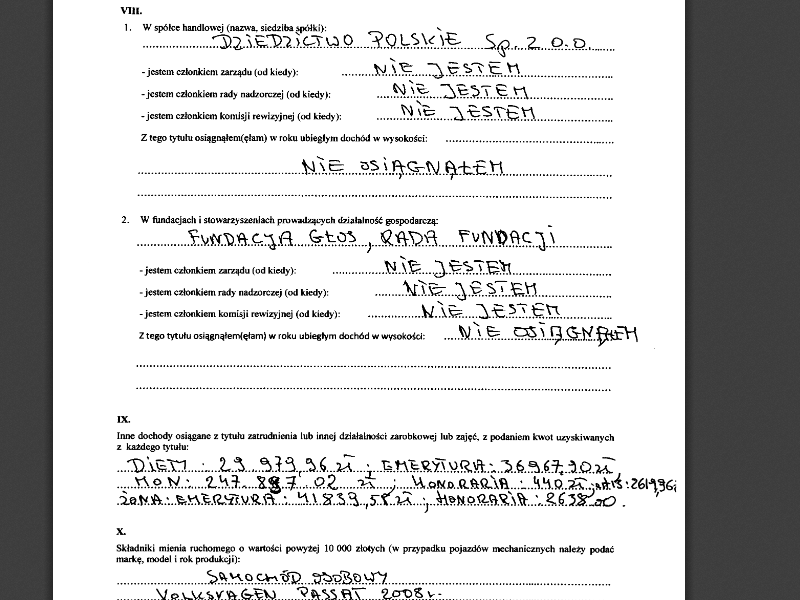 VIII.
1. W spółce handlowej (nazwa, siedziba spółki):
DZIEDZICTWO POLSKIE Sp. Z O.O.
- jestem członkiem zarządu (od kiedy): NIE JESTEM
- jestem członkiem rady nadzorczej (od kiedy): NIE JESTEM
- jestem członkiem komisji rewizyjnej (od kiedy): NIE JESTEM
Z tego tytułu osiągnąłem(ęłam) w roku ubiegłym dochód w wysokości:
NIE OSIĄGNĄŁEM
2. W fundacjach i stowarzyszeniach prowadzących działalność gospodarczą:
FUNDACJA GŁOS, RADA FUNDACJI
- jestem członkiem zarządu (od kiedy): NIE JESTEM
- jestem członkiem rady nadzorczej (od kiedy): NIE JESTEM
- jestem członkiem komisji rewizyjnej (od kiedy): NIE JESTEM
Z tego tytułu osiągnąłem(ęłam) w roku ubiegłym dochód w wysokości: NIE OSIĄGNĄŁEM
IX.
Inne dochody osiągane z tytułu zatrudnienia lub innej działalności zarobkowej lub zajęć, z podaniem kwot uzyskiwanych
z każdego tytułu:
DIETA : 29 979,96 zł ; EMERYTURA : 36967,90 zł
MON : 247 897 02 zł ; HONORARIA : 440 zł ; 2619,96
ŻONA : EMERYTURA : 41839,58 zł ; HONORARIA : 2638,00.
X.
Składniki mienia ruchomego o wartości powyżej 10 000 złotych (w przypadku pojazdów mechanicznych należy podać
markę, model i rok produkcji):
SAMOCHÓD OSOBOWY
VOLKSWAGEN PASSAT 2008 r.